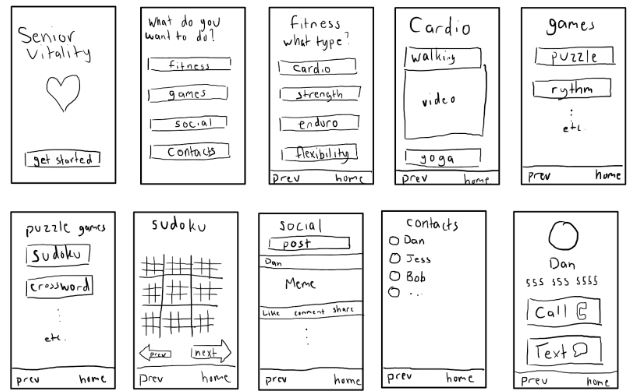 Senior
Vitality
get started
what do you
want to do?
fitness
games
social
contacts
fitness
what type?
cardio
strength
enduro
flexibility
prev home
Cardio
walking
video
yoga
prev home
games
puzzle
rythm
etc.
prev home
puzzle games
sudoku
crossword
etc.
prev home
sudoku
prev next
prev home
social
post
Dan
Meme
Like comment share
prev home
contacts
Dan
Jess
Bob
...
prev home
Dan
555 555 5555
Call
Text
prev home